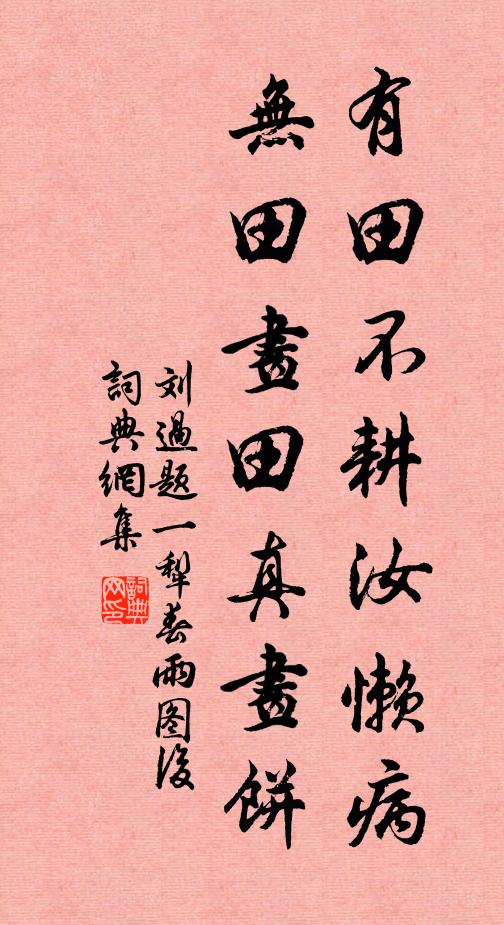 有田不耕汝懒病
無田畫田真畫餅
刘過题一犁春雨图後
詞典網集
詞典网印